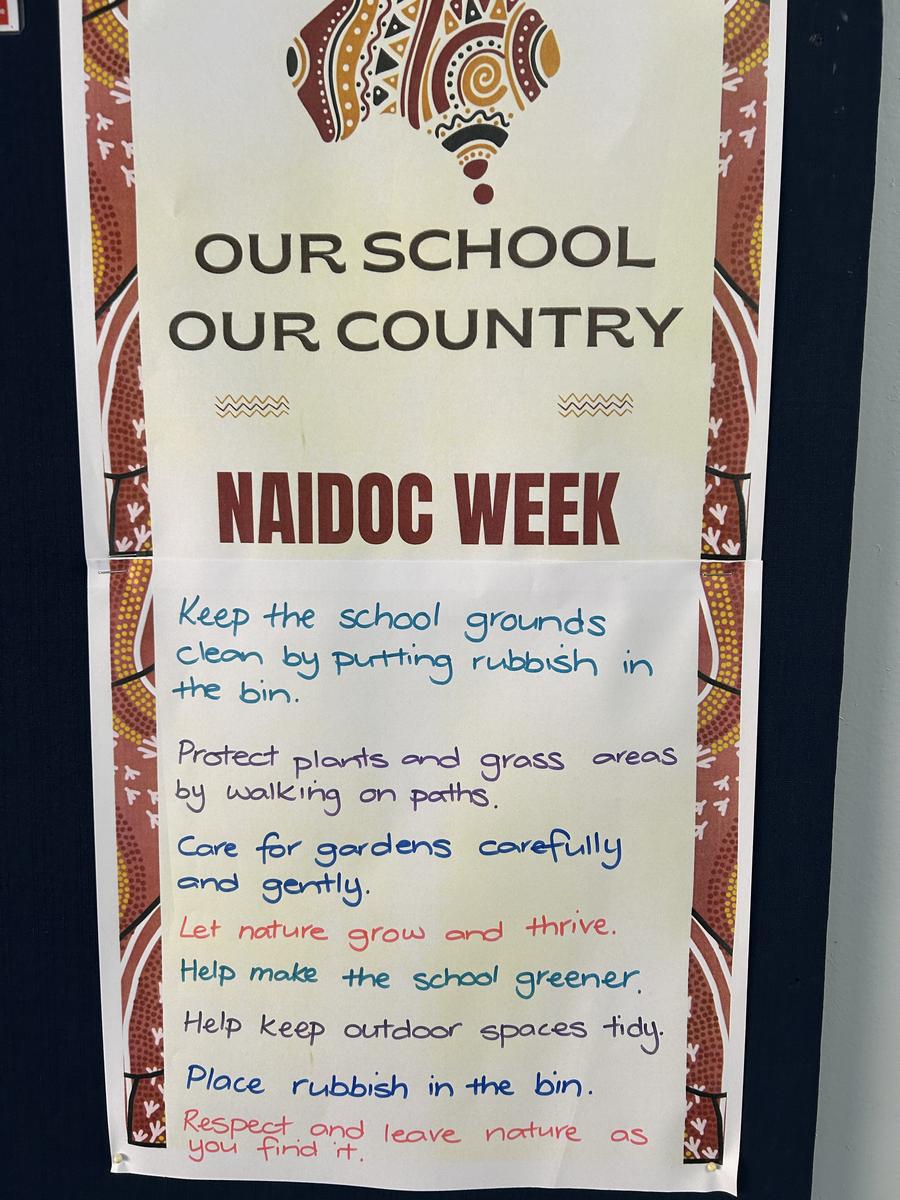 OUR SCHOOL
OUR COUNTRY
NAIDOC WEEK
Keep the school grounds
clean by putting rubbish in
the bin.
Protect plants and grass areas
by walking on paths.
Care for gardens carefully
and gently.
Let nature grow and thrive.
Help make the school greener.
Help keep outdoor spaces tidy.
Place rubbish in the bin.
Respect and leave nature as
you find it.